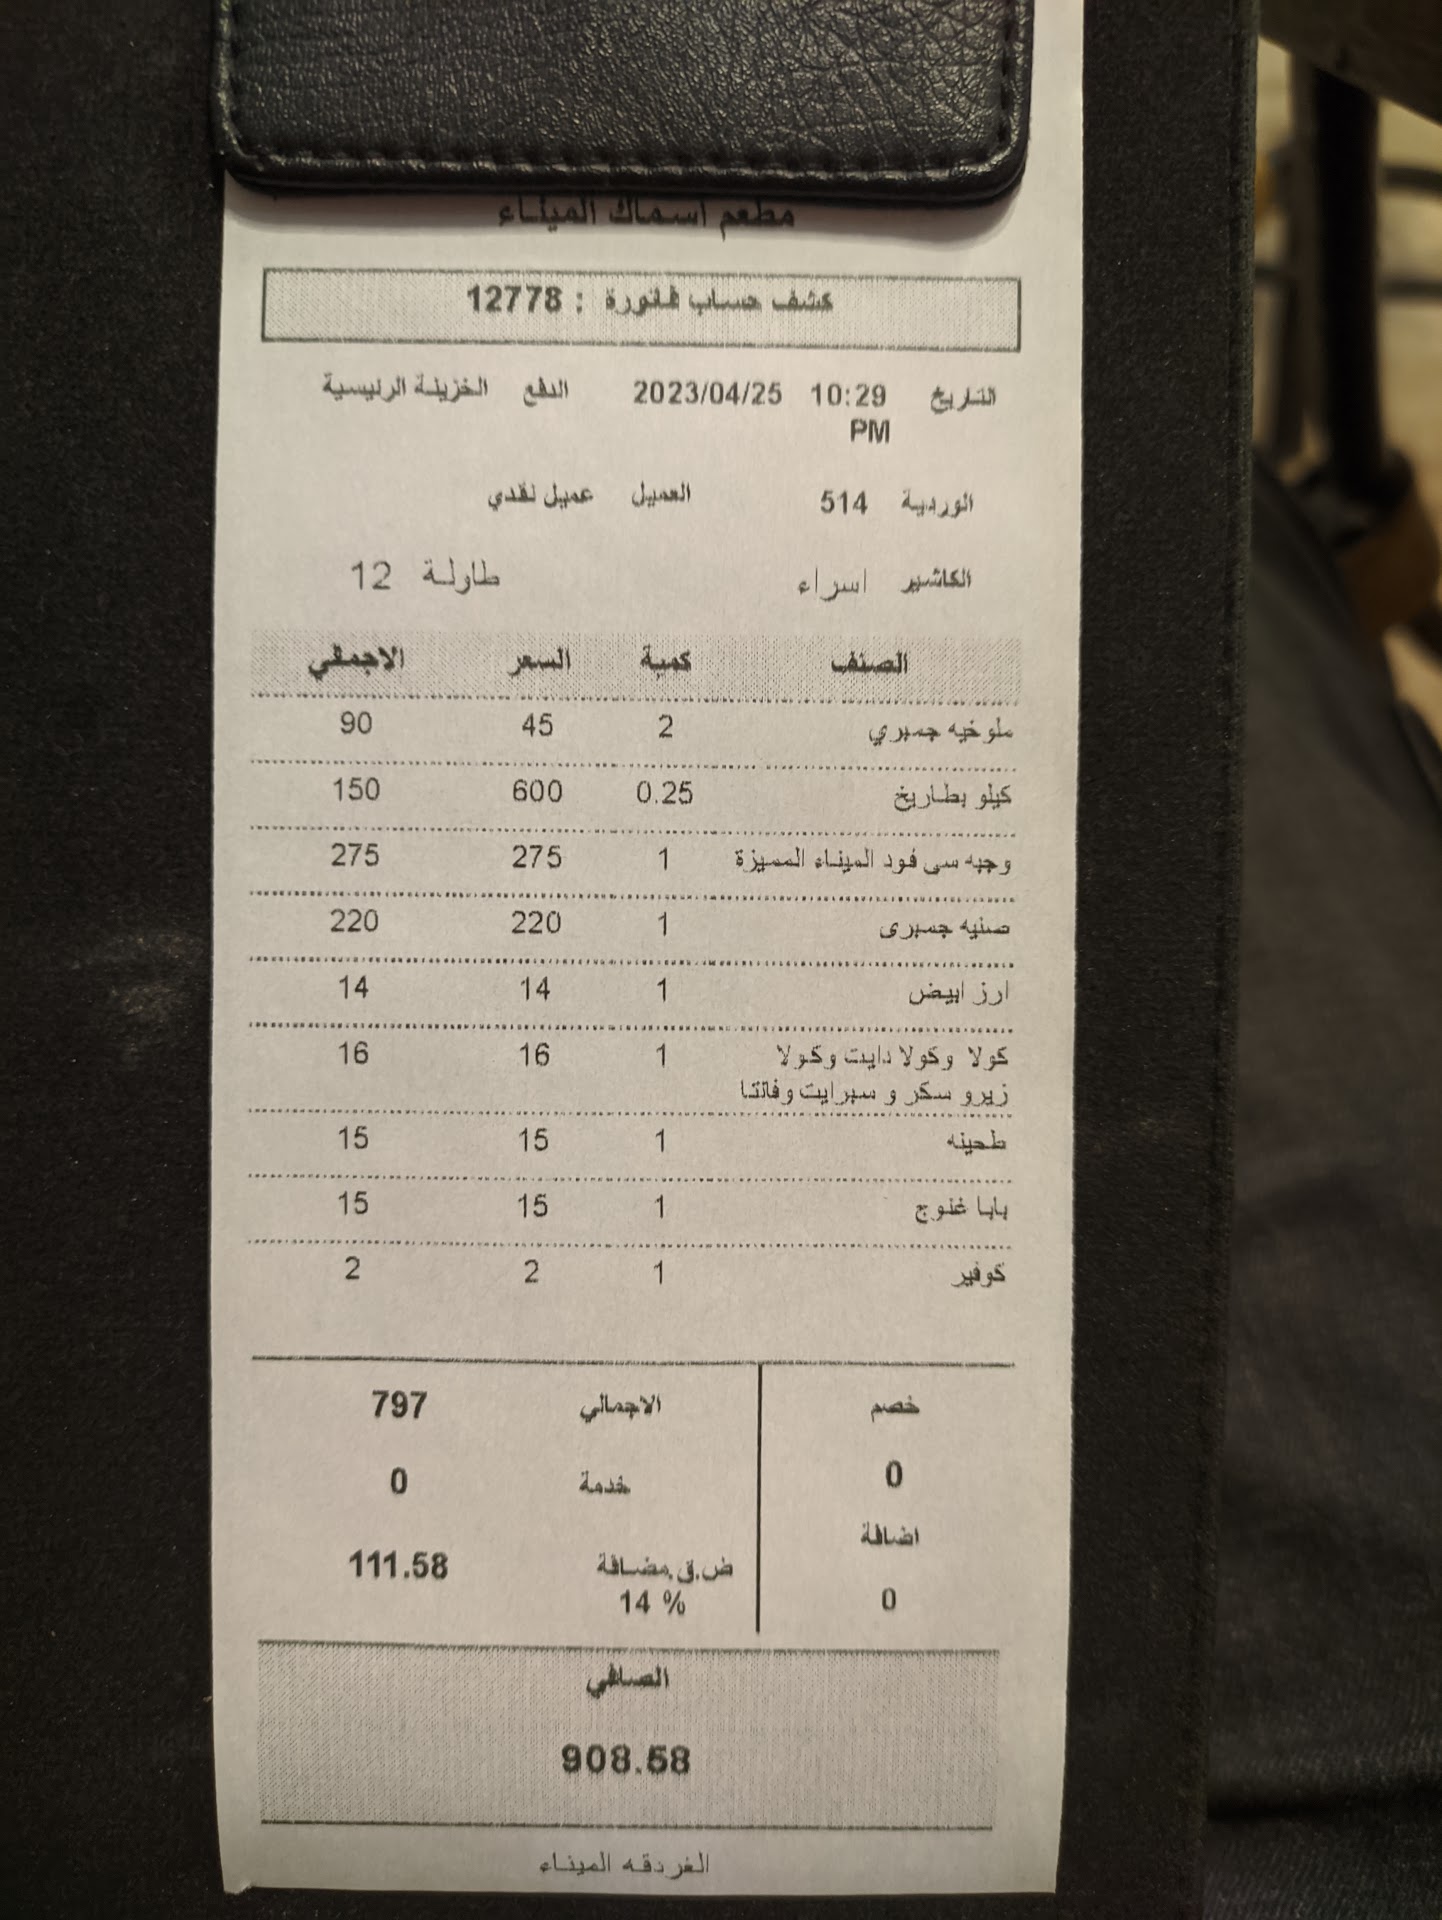 مطعم اسماك الميناء
كشف حساب فاتورة : 12778
التاريخ 10:29 2023/04/25 الدفع الخزينة الرئيسية
PM
الوردية 514 العميل عميل نقدي
الكاشير اسراء طاولة 12
الصنف كمية السعر الاجمالي
ملوخيه جمبري 2 45 90
كيلو بطاريخ 0.25 600 150
وجبه سى فود الميناء المميزة 1 275 275
صنيه جمبرى 1 220 220
ارز ابيض 1 14 14
كولا وكولا دايت وكولا 1 16 16
زيرو سكر و سبرايت وفانتا
طحينه 1 15 15
بابا غنوج 1 15 15
كوفير 1 2 2
خصم الاجمالي 797
0 خدمة 0
اضافة ض.ق.مضافة 111.58
0 14 %
الصافي
908.58
الغردقه الميناء